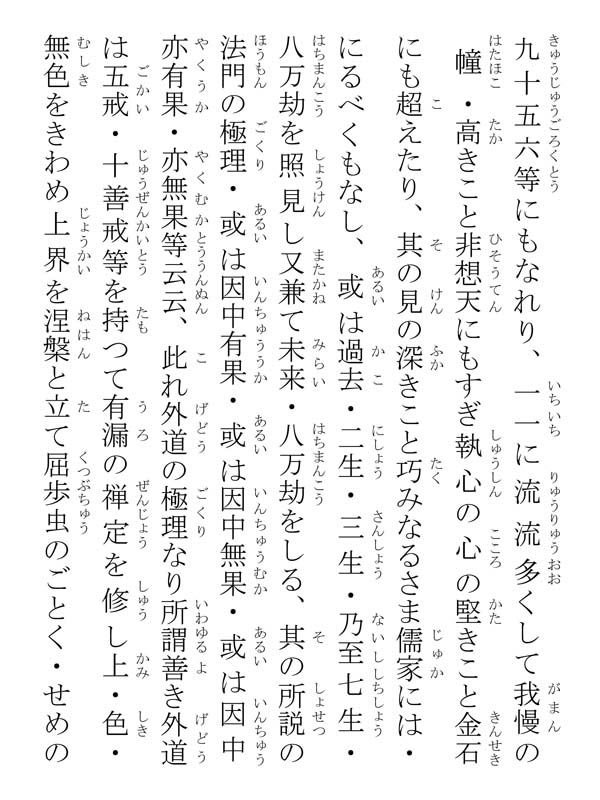 九十五六等にもなれり、一一に流流多くして我慢の
幢・高きこと非想天にもすぎ執心の心の堅きこと金石
にも超えたり、其の見の深きこと巧みなるさま儒家には・
にるべくもなし、或は過去・二生・三生・乃至七生・
八万劫を照見し又兼て未来・八万劫をしる、其の所説の
法門の極理・或は因中有果・或は因中無果・或は因中
亦有果・亦無果等云云、此れ外道の極理なり所謂善き外道
は五戒・十善戒等を持つて有漏の禅定を修し上・色・
無色をきわめ上界を涅槃と立て屈歩虫のごとく・せめの